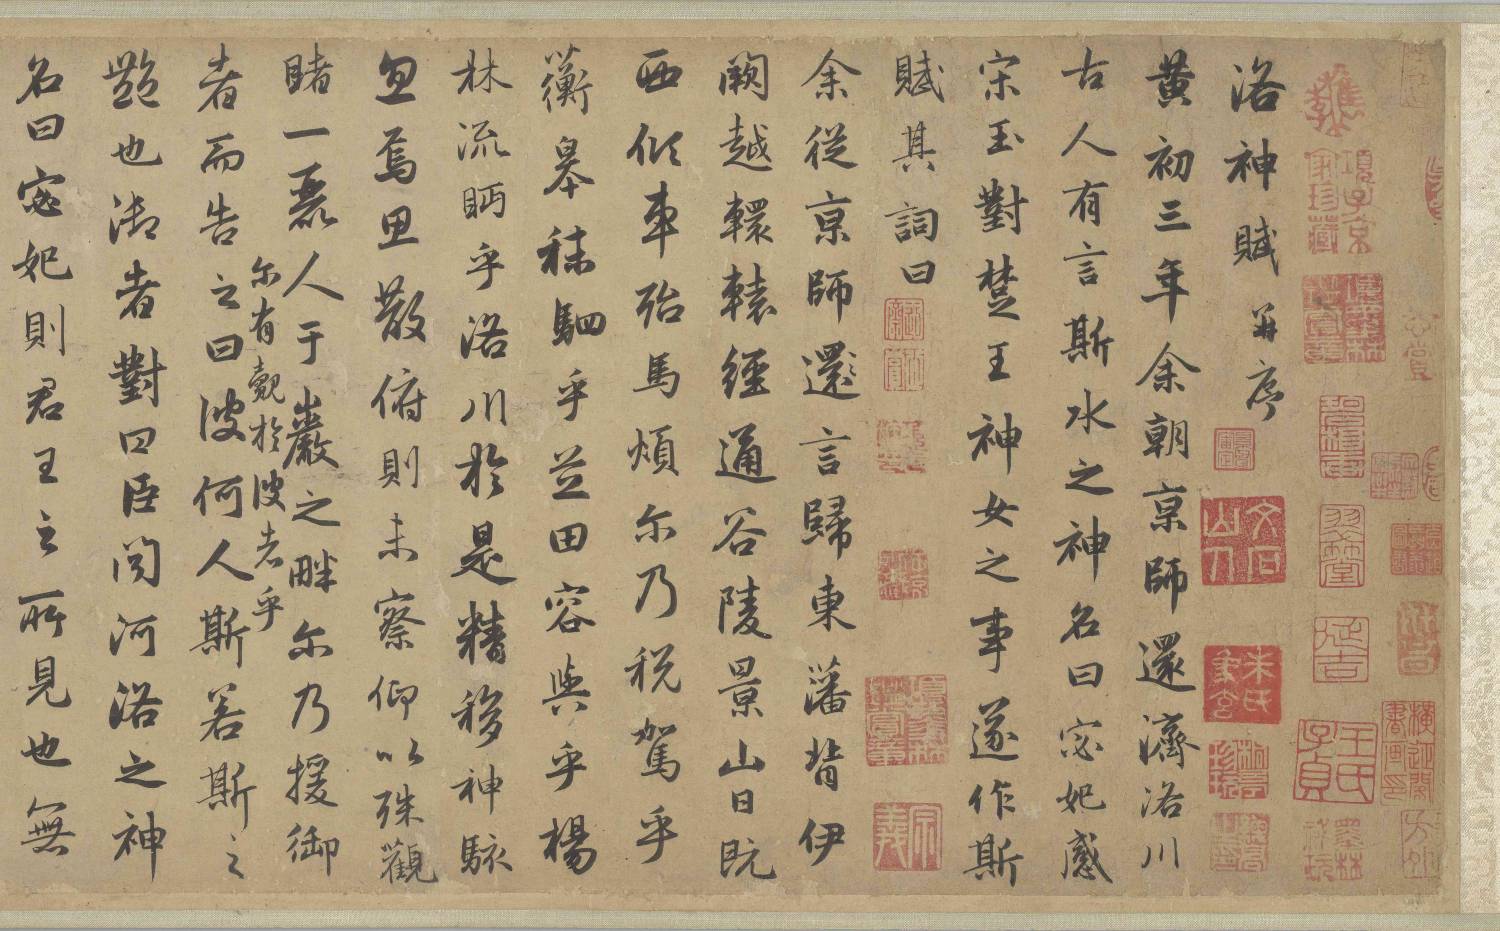 洛神賦 并序
黄初三年余朝京師還濟洛川
古人有言斯水之神名曰宓妃感
宋玉對楚王神女之事遂作斯
賦其詞曰
余從京師還言歸東藩背伊
闕越轘轅經通谷陵景山日既
西傾車殆馬煩尔乃税駕乎
蘅皋秣駟乎芝田容與乎楊
林流眄乎洛川於是精移神駭
忽焉思散俯則未察仰以殊觀
睹一麗人于巖之畔尔乃援御
尔有覿於彼者乎
者而告之曰彼何人斯若斯之
豔也御者對曰臣聞河洛之神
名曰宓妃則君王之所見也無
項子京家珍藏
文石山人
朱氏象玄
王氏子貞